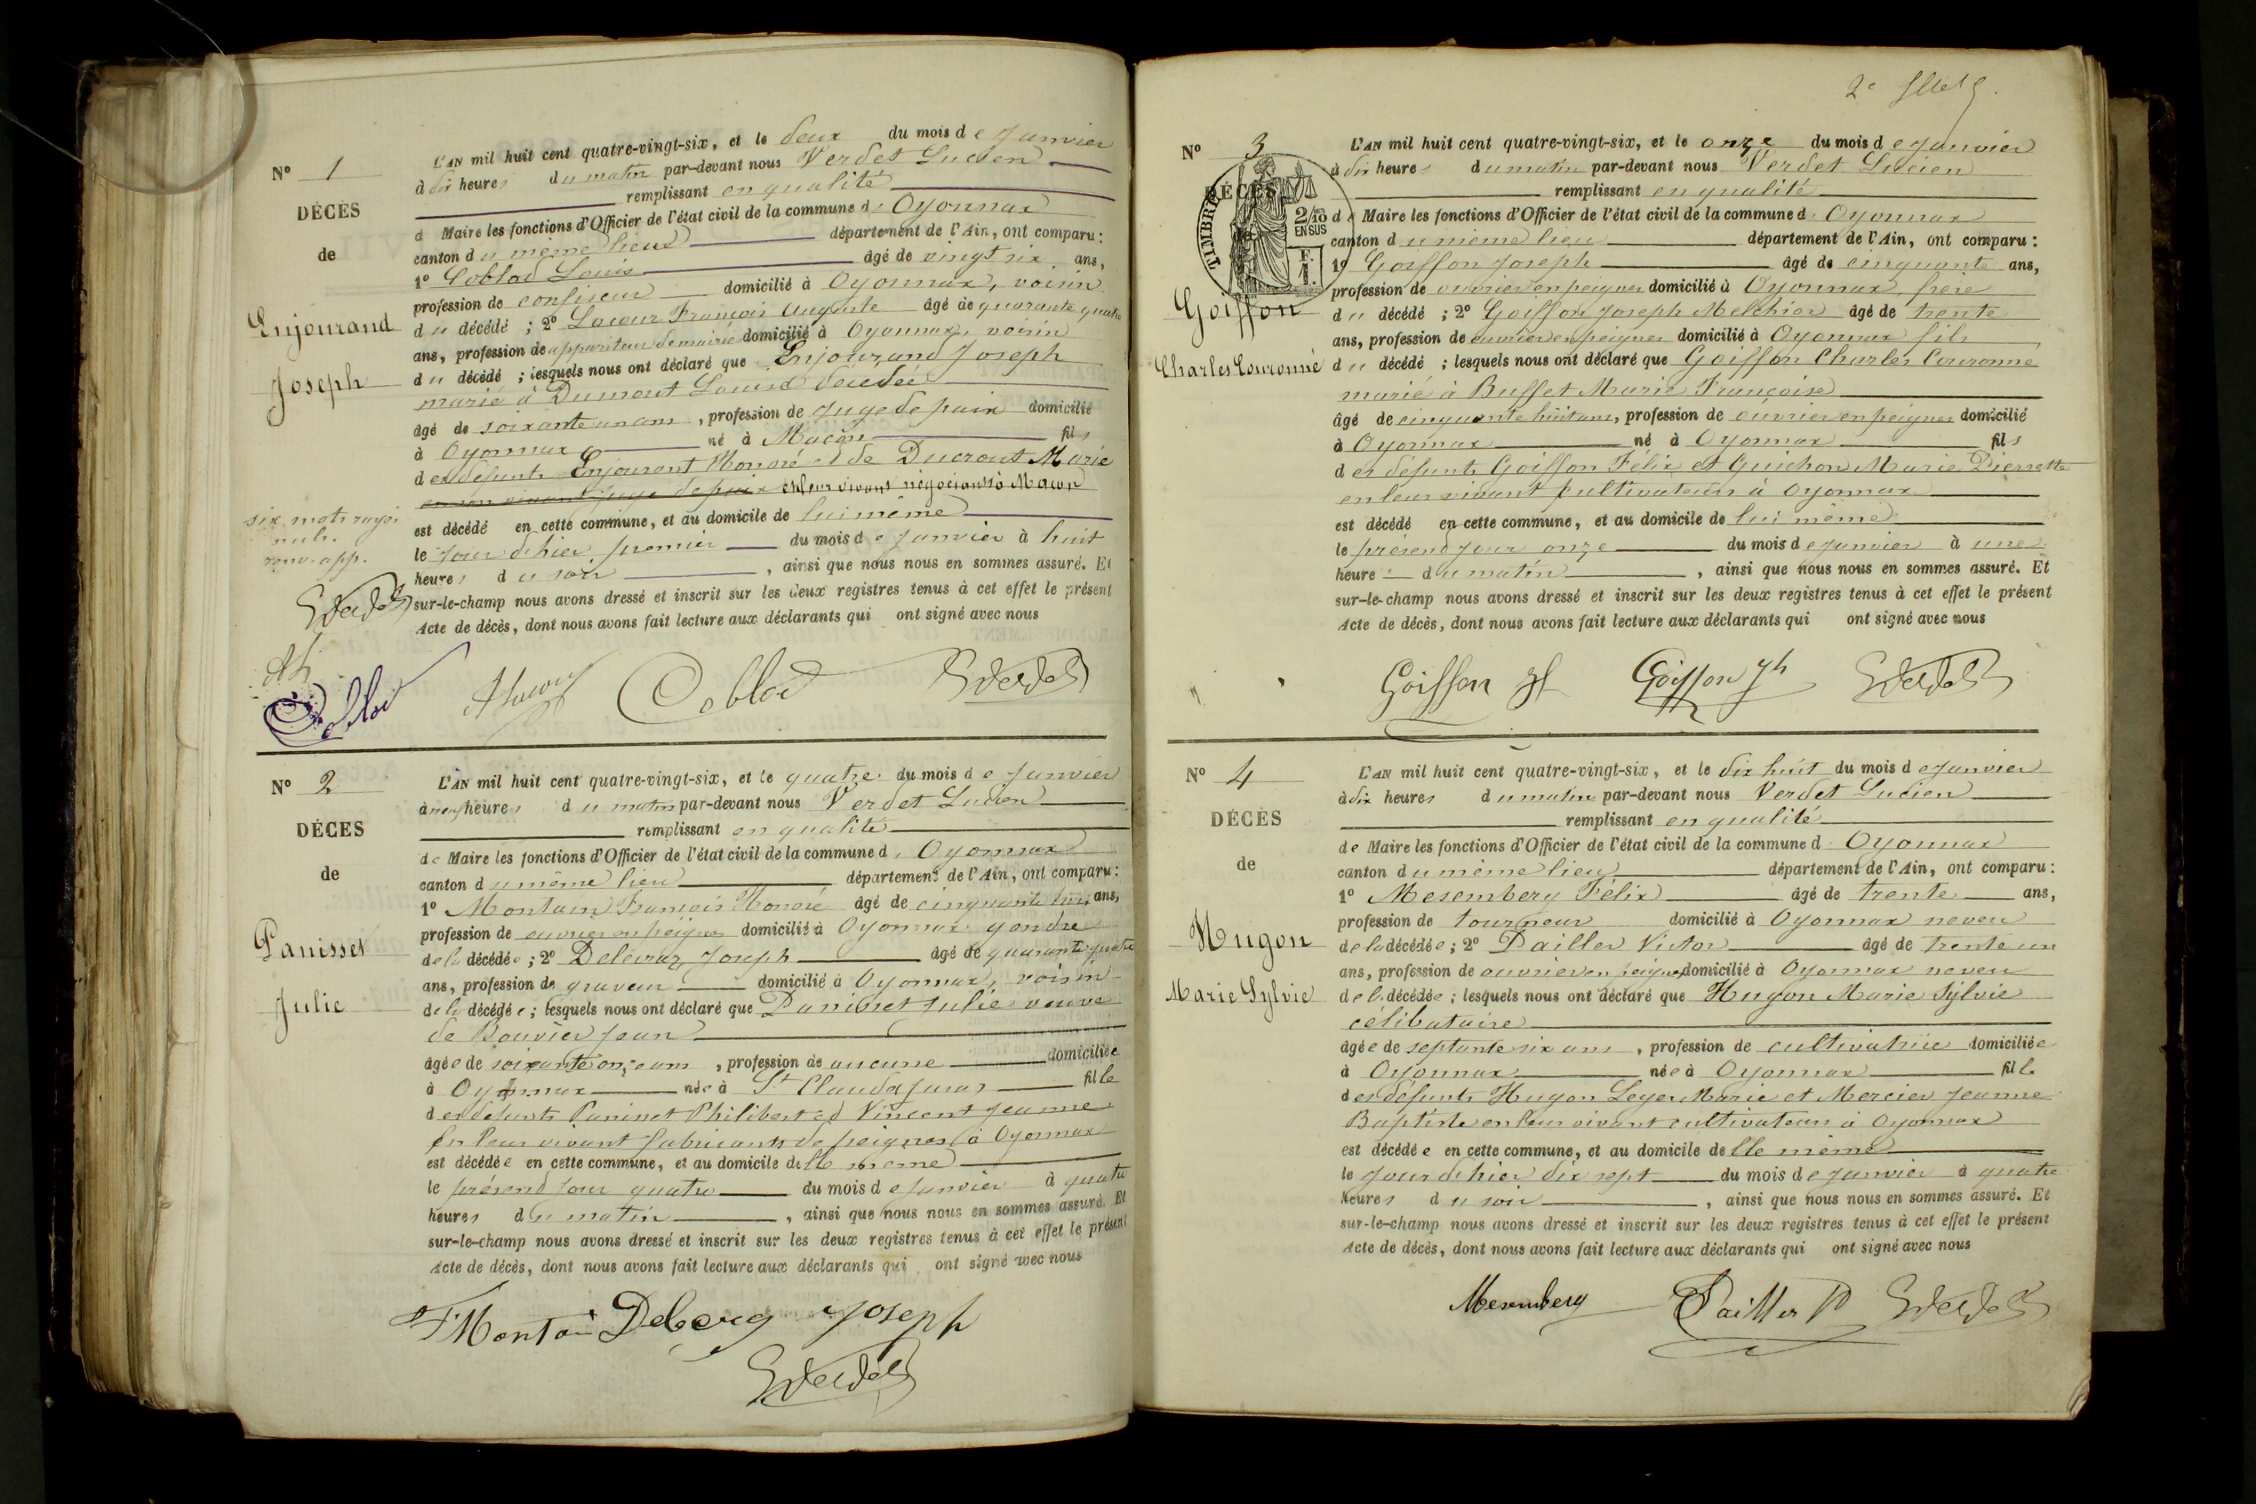 N° 1
DÉCÈS
de
Enjourand
Joseph
six mots rayés
nuls.
L'AN mil huit cent quatre-vingt-six, et le deux du mois de Janvier
à dix heures du matin par-devant nous Verdet Lucien
remplissant en qualité
d Maire les fonctions d'Officier de l'état civil de la commune d' Oyonnax
canton du même lieu département de l'Ain, ont comparu :
1° Coblod Louis âgé de vingt six ans,
profession de confiseur domicilié à Oyonnax, voisin
du décédé ; 2° Lacour François Auguste âgé de quarante quatre
ans, profession de appariteur de mairie domicilié à Oyonnax, voisin
du décédé ; lesquels nous ont déclaré que Enjourand Joseph
marié à Dumont Louise décédée
âgé de soixante un ans, profession de Juge de paix domicilié
à Oyonnax né à Macon fils
des défunts Enjourent Honoré et de Ducrout Marie
en son vivant juge de paix en leur vivant négociants à Macon
est décédé en cette commune, et au domicile de lui même
le jour d'hier premier du mois de Janvier à huit
heures du soir, ainsi que nous nous en sommes assuré. Et
sur-le-champ nous avons dressé et inscrit sur les deux registres tenus à cet effet le présent
Acte de décès, dont nous avons fait lecture aux déclarants qui ont signé avec nous
Coblod
Coblod
N° 2
DÉCES
de
Panisset
Julie
L'AN mil huit cent quatre-vingt-six, et le quatre du mois de Janvier
à neuf heures du matin par-devant nous Verdet Lucien
remplissant en qualité
de Maire les fonctions d'Officier de l'état civil de la commune d' Oyonnax
canton du même lieu département de l'Ain, ont comparu :
1° Montain François Honoré âgé de cinquante huit ans,
profession de ouvrier en peignes domicilié à Oyonnax gendre
de la décédée ; 2° Delévraz Joseph âgé de quarante quatre
ans, profession de graveur domicilié à Oyonnax, voisin
de la décédée ; lesquels nous ont déclaré que Panisset Julie veuve
de Bouvier Jean
âgée de soixante onze ans, profession de aucune domiciliée
à Oyonnax née à St Claude Jura fille
des défunts Panisset Philibert et Vincent Jeanne
en leur vivant fabricants de peignes à Oyonnax
est décédée en cette commune, et au domicile d'elle même
le présent jour quatre du mois de Janvier à quatre
heures du matin, ainsi que nous nous en sommes assuré. Et
sur-le-champ nous avons dressé et inscrit sur les deux registres tenus à cet effet le présent
Acte de décès, dont nous avons fait lecture aux déclarants qui ont signé avec nous
Joseph
N° 3
DÉCÈS
de
TIMBRE
2/10
EN SUS
F.
1.
Goiffon
Charles Couronné
L'AN mil huit cent quatre-vingt-six, et le onze du mois de Janvier
à dix heures du matin par-devant nous Verdet Lucien
remplissant en qualité
de Maire les fonctions d'Officier de l'état civil de la commune d' Oyonnax
canton du même lieu département de l'Ain, ont comparu :
1° Goiffon Joseph âgé de cinquante ans,
profession de ouvrier en peignes domicilié à Oyonnax frère
du décédé ; 2° Goiffon Joseph Melchior âgé de trente
ans, profession de ouvrier en peignes domicilié à Oyonnax fils
du décédé ; lesquels nous ont déclaré que Goiffon Charles Couronné
marié à Buffet Marie Françoise
âgé de cinquante huit ans, profession de ouvrier en peignes domicilié
à Oyonnax né à Oyonnax fils
des défunts Goiffon Félix et Guichon Marie Pierrette
en leur vivant cultivateurs à Oyonnax
est décédé en cette commune, et au domicile de lui même
le présent jour onze du mois de Janvier à une
heure du matin, ainsi que nous nous en sommes assuré. Et
sur-le-champ nous avons dressé et inscrit sur les deux registres tenus à cet effet le présent
Acte de décès, dont nous avons fait lecture aux déclarants qui ont signé avec nous
Goiffon Goiffon Jh
N° 4
DÉCÈS
de
Hugon
Marie Sylvie
L'AN mil huit cent quatre-vingt-six, et le dix huit du mois de Janvier
à dix heures du matin par-devant nous Verdet Lucien
remplissant en qualité
de Maire les fonctions d'Officier de l'état civil de la commune d' Oyonnax
canton du même lieu département de l'Ain, ont comparu :
1° Mesembery Félix âgé de trente ans,
profession de tourneur domicilié à Oyonnax neveu
de la décédée ; 2° Pailler Victor âgé de trente un
ans, profession de ouvrier en peignes domicilié à Oyonnax neveu
de la décédée ; lesquels nous ont déclaré que Hugon Marie Sylvie
célibataire
âgée de septante six ans, profession de cultivatrice domiciliée
à Oyonnax née à Oyonnax fille
des défunts Hugon Leger Marie et Mercier Jeanne
Baptiste en leur vivant cultivateurs à Oyonnax
est décédée en cette commune, et au domicile d'elle même
le jour d'hier dix sept du mois de Janvier à quatre
heures du soir, ainsi que nous nous en sommes assuré. Et
sur-le-champ nous avons dressé et inscrit sur les deux registres tenus à cet effet le présent
Acte de décès, dont nous avons fait lecture aux déclarants qui ont signé avec nous
Mesembery Pailler